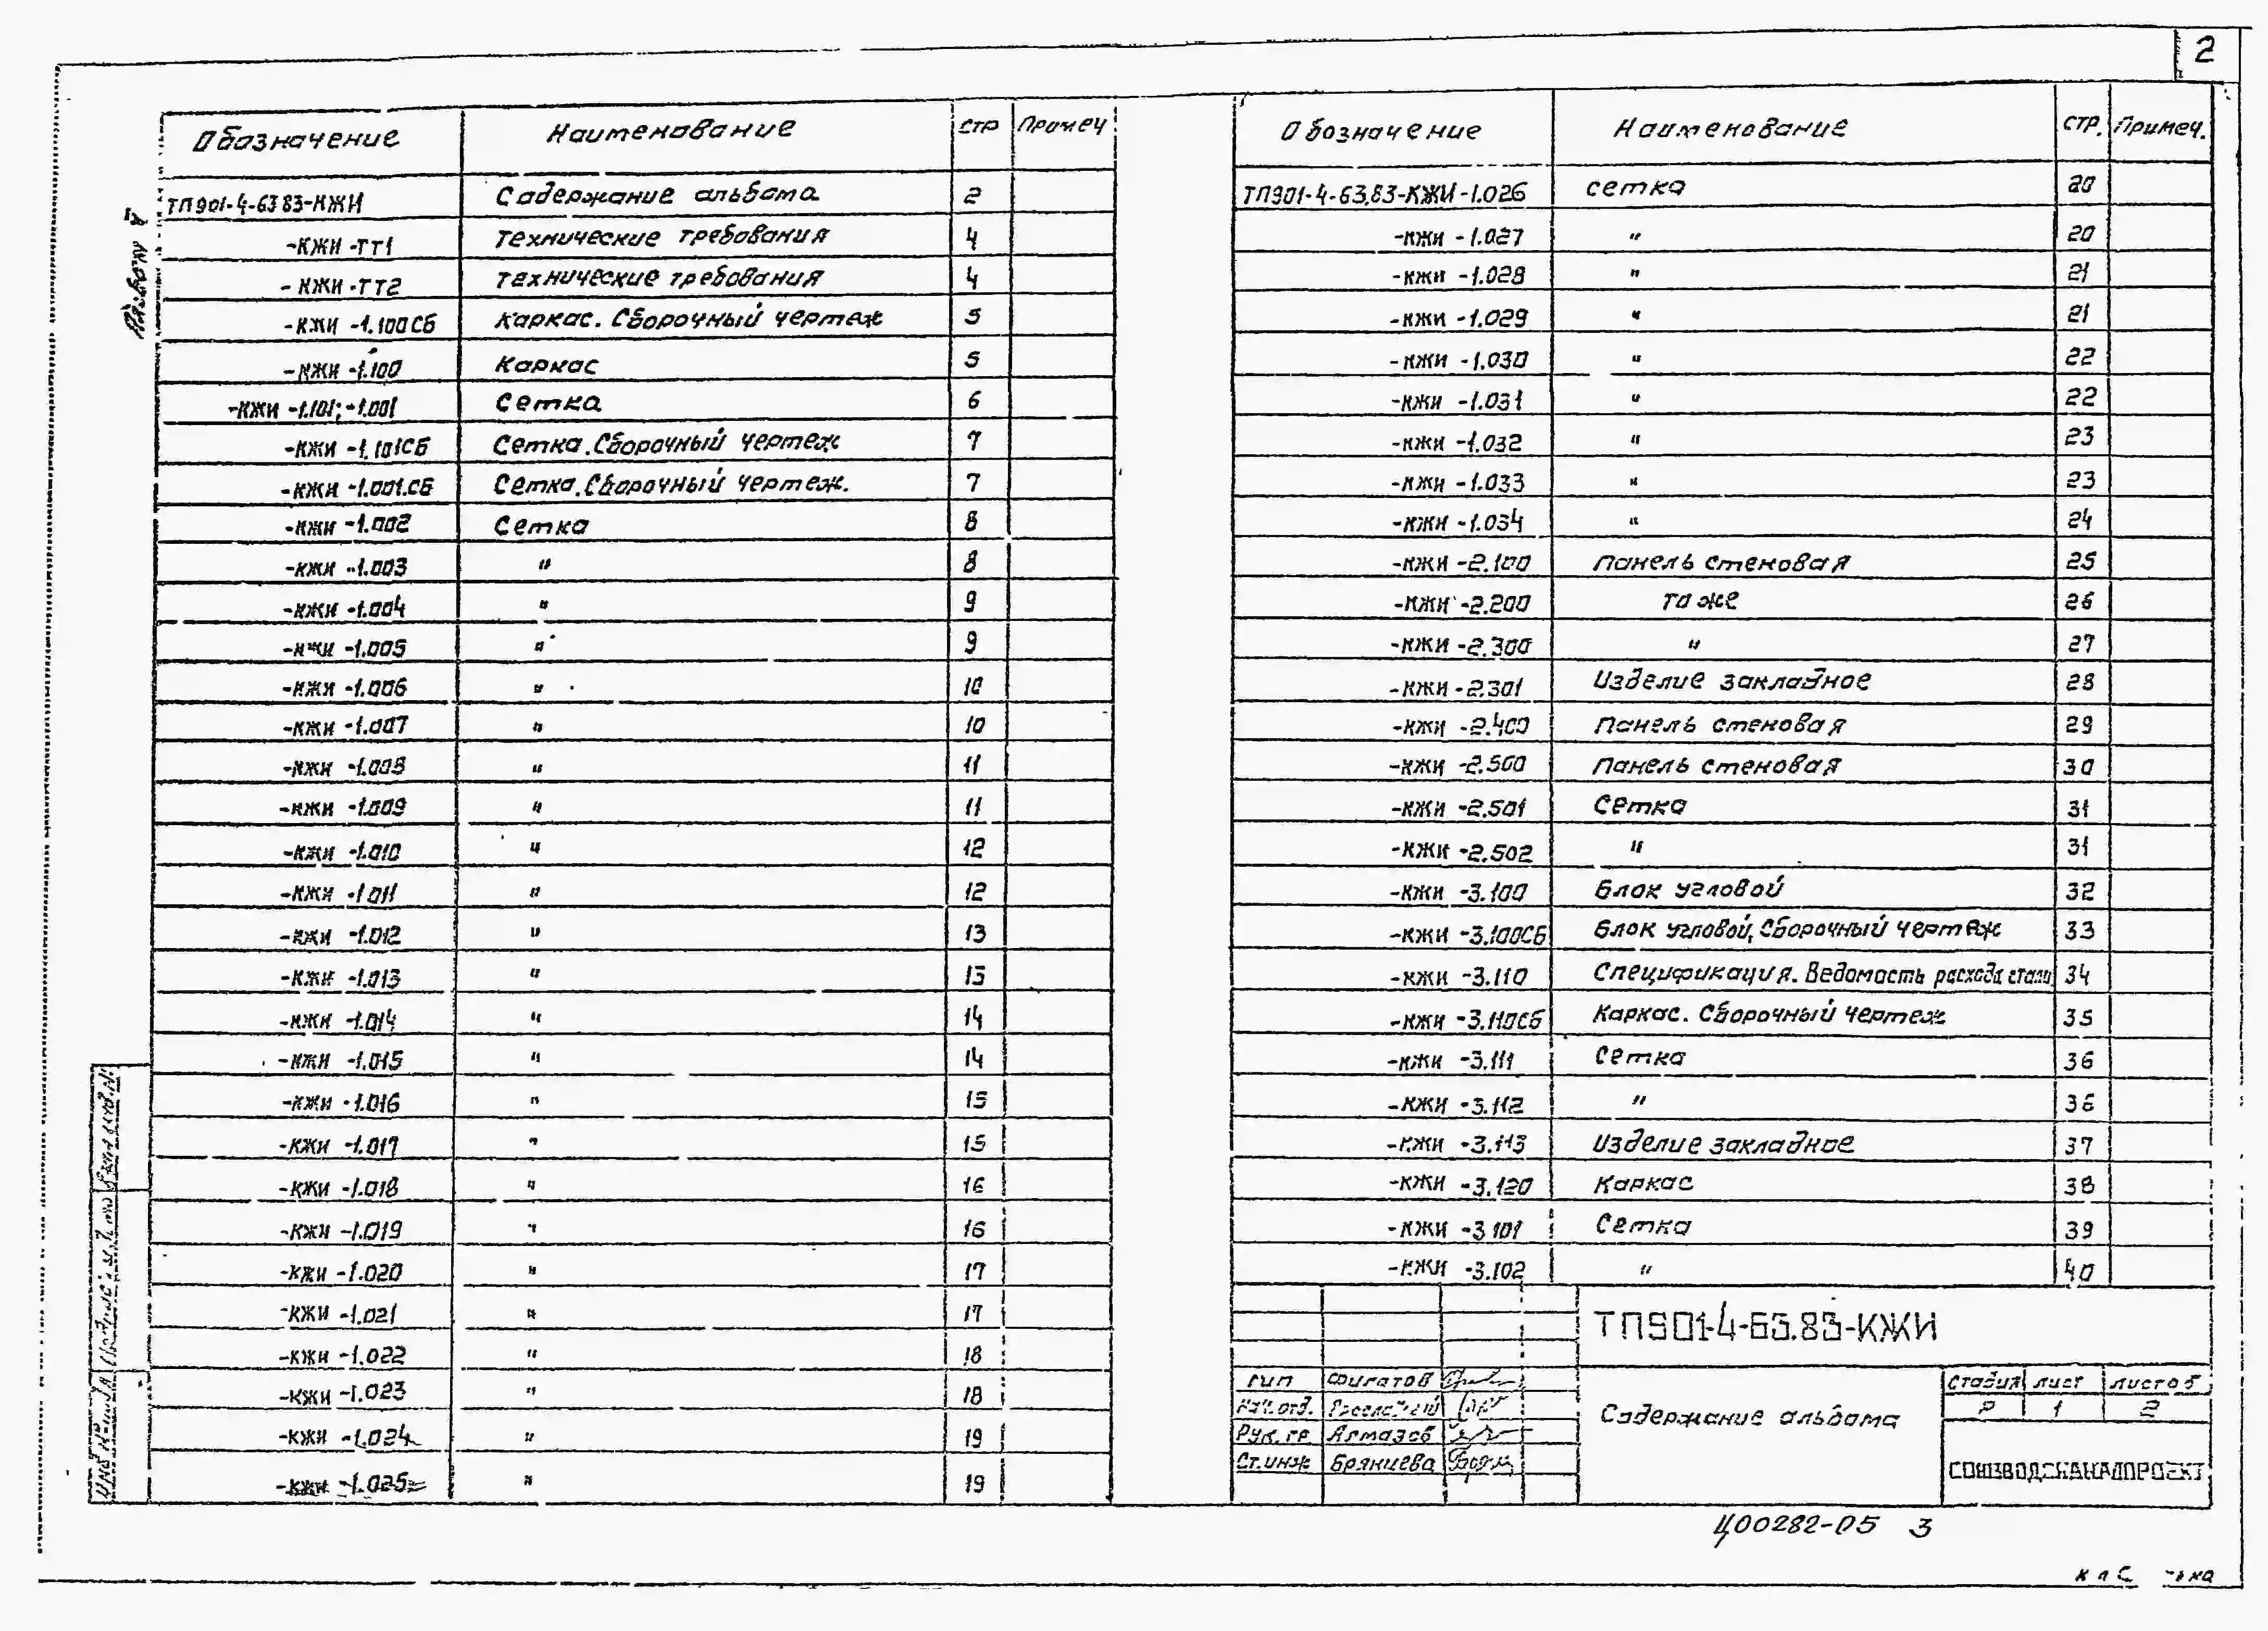 2
Обозначение Наименование стр Примеч
ТП901-4-63 83-КЖИ Содержание альбома 2
-КЖИ -ТТ1 Технические требования 4
-КЖИ -ТТ2 Технические требования 4
-КЖИ -1.100СБ Каркас. Сборочный чертеж 5
-КЖИ -1.100 Каркас 5
-КЖИ -1.101; -1.001 Сетка 6
-КЖИ -1.101СБ Сетка. Сборочный чертеж 7
-КЖИ -1.001.СБ Сетка. Сборочный чертеж. 7
-КЖИ -1.002 Сетка 8
-КЖИ -1.003 " 8
-КЖИ -1.004 " 9
-КЖИ -1.005 " 9
-КЖИ -1.006 " 10
-КЖИ -1.007 " 10
-КЖИ -1.008 " 11
-КЖИ -1.009 " 11
-КЖИ -1.010 " 12
-КЖИ -1 011 " 12
-КЖИ -1.012 " 13
-КЖИ -1.013 " 13
-КЖИ -1.014 " 14
-КЖИ -1.015 " 14
-КЖИ -1.016 " 15
-КЖИ -1.017 " 15
-КЖИ -1.018 " 16
-КЖИ -1.019 " 16
-КЖИ -1.020 " 17
-КЖИ -1.021 " 17
-КЖИ -1.022 " 18
-КЖИ -1.023 " 18
-КЖИ -1.024 " 19
-КЖИ -1.025 " 19
Обозначение Наименование стр. Примеч.
ТП901-4-63.83-КЖИ-1.026 сетка 20
-КЖИ -1.027 " 20
-КЖИ -1.028 " 21
-КЖИ -1.029 " 21
-КЖИ -1.030 " 22
-КЖИ -1.031 " 22
-КЖИ -1.032 " 23
-КЖИ -1.033 " 23
-КЖИ -1.034 " 24
-КЖИ -2.100 Панель стеновая 25
-КЖИ -2.200 То же 26
-КЖИ -2.300 " 27
-КЖИ -2.301 Изделие закладное 28
-КЖИ -2.400 Панель стеновая 29
-КЖИ -2.500 Панель стеновая 30
-КЖИ -2.501 Сетка 31
-КЖИ -2.502 " 31
-КЖИ -3.100 Блок угловой 32
-КЖИ -3.100СБ Блок угловой, Сборочный чертеж 33
-КЖИ -3.110 Спецификация. Ведомость расхода стали 34
-КЖИ -3.110СБ Каркас. Сборочный чертеж 35
-КЖИ -3.111 Сетка 36
-КЖИ -3.112 " 36
-КЖИ -3.113 Изделие закладное 37
-КЖИ -3.120 Каркас 38
-КЖИ -3 101 Сетка 39
-КЖИ -3.102 " 40
ТП901-4-63.83-КЖИ
ГИП
Нач.отд.
Рук. гр. Алмазов
Ст.инж Брянцева
Содержание альбома
Стадия лист листов
Р 1 2
СОЮЗВОДОКАНАЛПРОЕКТ
Ц00282-05 3